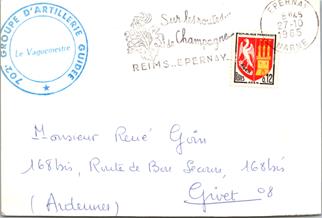 702e GROUPE D'ARTILLERIE GUIDÉE
Le Vaguemestre
Sur les routes du Champagne
REIMS_EPERNAY_
EPERNAY
27-10
1965
MARNE
REPUBLIQUE FRANCAISE
0,12
Monsieur René
168bis, Route de Bon 168bis
(Ardennes) Givet 08